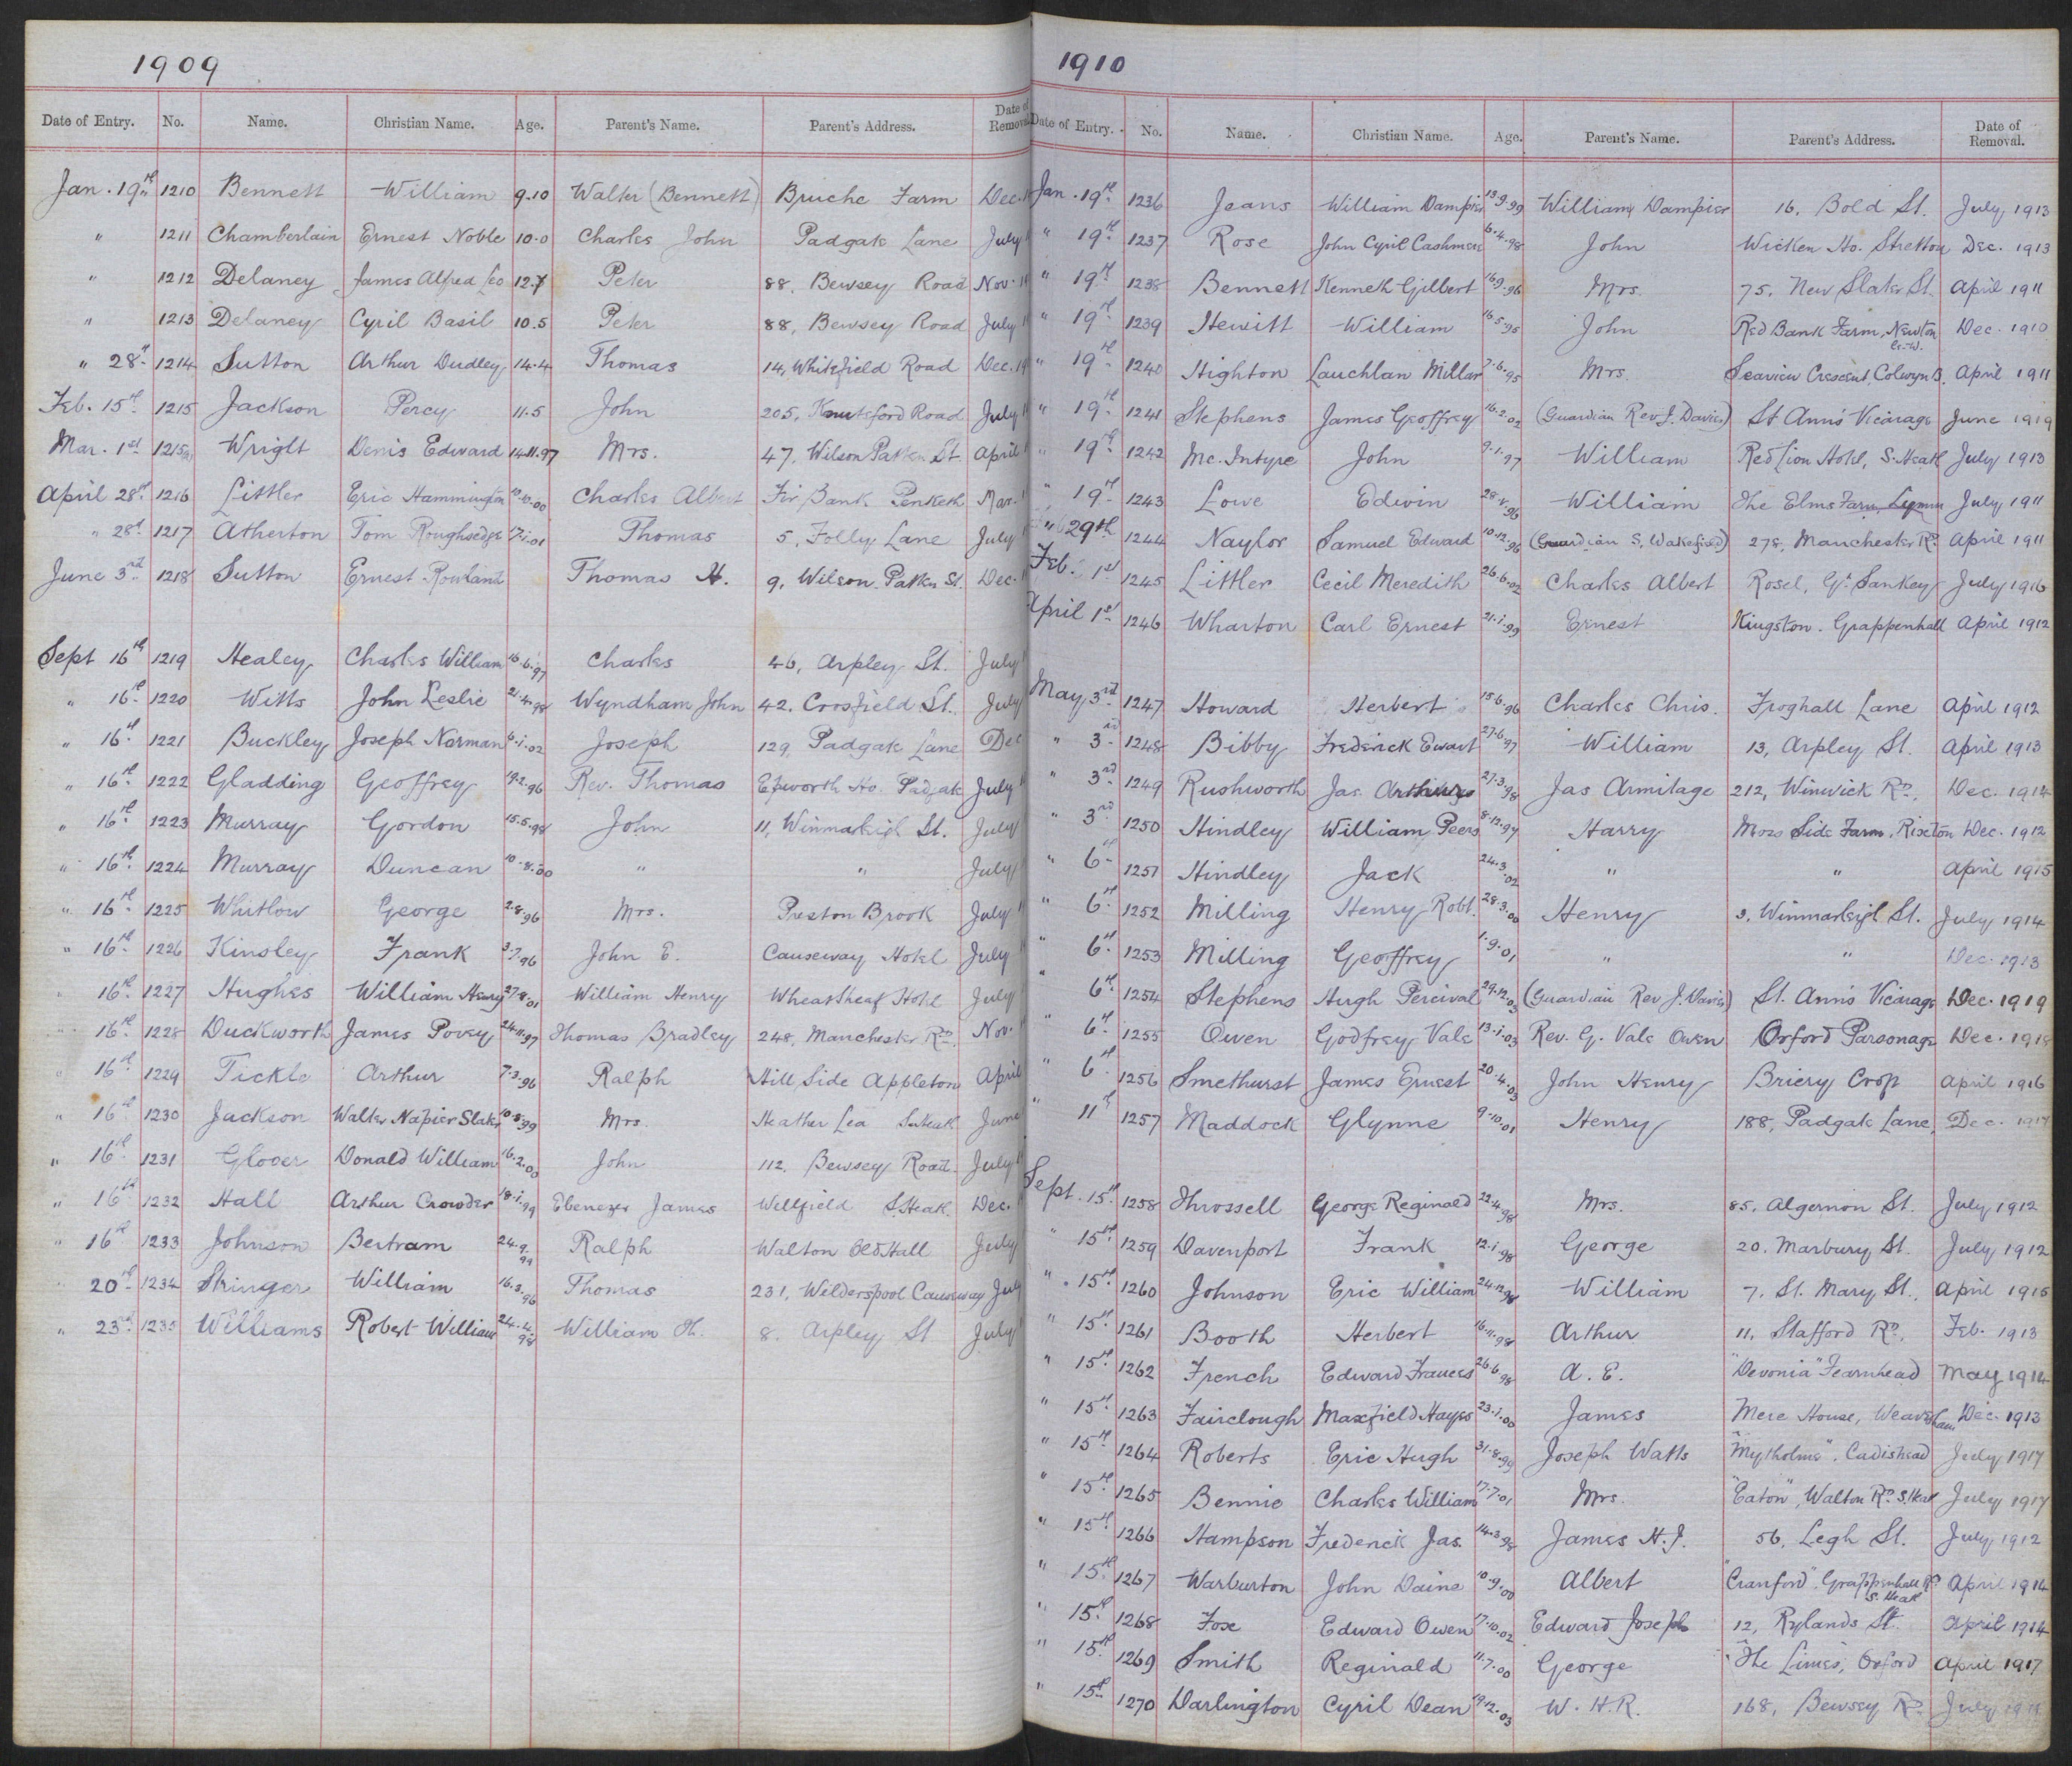 1909
Date of Entry. No. Name. Christian Name. Age. Parent's Name. Parent's Address. Date of Removal
Jan. 19th 1210 Bennett William 9.10 Walter (Bennett) Bruche Farm Dec.
" 1211 Chamberlain Ernest Noble 10.0 Charles John Padgate Lane July
" 1212 Delaney James Alfred Leo 12.7 Peter 88, Bewsey Road Nov.
" 1213 Delaney Cyril Basil 10.5 Peter 88, Bewsey Road July
" 28th 1214 Sutton Arthur Dudley 14.4 Thomas 14, Whitefield Road Dec. 19
Feb. 15th 1215 Jackson Percy 11.5 John 205, Knutsford Road July
Mar. 1st 1215a Wright Denis Edward 14.11.97 Mrs. 47, Wilson Patten St. April
April 28th 1216 Littler Eric Hammington 10.10.00 Charles Albert Fir Bank Penketh Mar.
" 28th 1217 Atherton Tom Roughsedge 17.1.01 Thomas 5, Folly Lane July
June 3rd 1218 Sutton Ernest Rowland Thomas H. 9, Wilson Patten St. Dec.
Sept 16th 1219 Healey Charles William 16.6.97 Charles 46, Arpley St. July
" 16th 1220 Witts John Leslie 21.4.98 Wyndham John 42, Crosfield St. July
" 16th 1221 Buckley Joseph Norman 6.1.02 Joseph 129, Padgate Lane Dec
" 16th 1222 Gladding Geoffrey 19.2.96 Rev. Thomas Epworth Ho. Padgate July
" 16th 1223 Murray Gordon 15.5.98 John 11, Winmarleigh St. July
" 16th 1224 Murray Duncan 10.8.00 " " July
" 16th 1225 Whitlow George 2.8.96 Mrs. Preston Brook July
" 16th 1226 Kinsley Frank 3.7.96 John E. Causeway Hotel July
" 16th 1227 Hughes William Henry 27.8.01 William Henry Wheatsheaf Hotel July
" 16th 1228 Duckworth James Povey 24.11.97 Thomas Bradley 248, Manchester Rd. Nov.
" 16th 1229 Tickle Arthur 7.3.96 Ralph Hill Side Appleton April
" 16th 1230 Jackson Walter Napier Slater 10.8.99 Mrs. Heather Lea S. Heath June
" 16th 1231 Glover Donald William 16.2.00 John 112, Bewsey Road July
" 16th 1232 Hall Arthur Crowder 18.1.99 Ebenezer James Wellfield S. Heath Dec.
" 16th 1233 Johnson Bertram 24.9.99 Ralph Walton Old Hall July
" 20th 1234 Stringer William 16.3.96 Thomas 231, Wilderspool Causeway July
" 23rd 1235 Williams Robert William 24.4.98 William H. 8, Arpley St July
1910
Date of Entry. No. Name. Christian Name. Age. Parent's Name. Parent's Address. Date of Removal.
Jan. 19th 1236 Jeans William Dampier 13.9.99 William Dampier 16, Bold St. July 1913
" 19th 1237 Rose John Cyril Cashmere 6.4.98 John Wicken Ho. Stretton Dec. 1913
" 19th 1238 Bennett Kenneth Gilbert 16.9.96 Mrs. 75, New Slater St. April 1911
" 19th 1239 Hewitt William 16.5.95 John Red Bank Farm, Newton le-W. Dec. 1910
" 19th 1240 Highton Lauchlan Millar 7.6.95 Mrs. Seaview Crescent, Colwyn B. April 1911
" 19th 1241 Stephens James Geoffrey 16.2.02 (Guardian Rev. J. Davies) St Ann's Vicarage June 1919
" 19th 1242 Mc. Intyre John 9.1.97 William Red Lion Hotel, S. Heath July 1913
" 19th 1243 Lowe Edwin 28.5.96 William The Elms Farm, Lymm July 1911
" 29th 1244 Naylor Samuel Edward 10.12.96 (Guardian S. Wakefield) 278, Manchester Rd. April 1911
Feb. 1st 1245 Littler Cecil Meredith 26.6.02 Charles Albert Rosel, Gt. Sankey July 1916
April 1st 1246 Wharton Carl Ernest 21.1.99 Ernest Kingston. Grappenhall April 1912
May 3rd 1247 Howard Herbert 15.6.96 Charles Chris. Froghall Lane April 1912
" 3rd 1248 Bibby Frederick Ewart 27.6.97 William 13, Arpley St. April 1913
" 3rd 1249 Rushworth Jas. Arthur 27.3.98 Jas Armitage 212, Winwick Rd. Dec. 1914
" 3rd 1250 Hindley William Peers 8.12.97 Harry Moss Side Farm, Rixton Dec. 1912
" 6th 1251 Hindley Jack 24.3.02 " " April 1915
" 6th 1252 Milling Henry Robt. 28.3.00 Henry 3, Winmarleigh St. July 1914
" 6th 1253 Milling Geoffrey 1.9.01 " " Dec. 1913
" 6th 1254 Stephens Hugh Percival 29.12.03 (Guardian Rev J. Davies) St. Ann's Vicarage Dec. 1919
" 6th 1255 Owen Godfrey Vale 13.1.03 Rev. G. Vale Owen Orford Parsonage Dec. 1918
" 6th 1256 Smethurst James Ernest 20.4.03 John Henry Briery Croft April 1916
" 11th 1257 Maddock Glynne 9.10.01 Henry 188, Padgate Lane, Dec. 1917
Sept. 15th 1258 Throssell George Reginald 22.4.98 Mrs. 85, Algernon St. July 1912
" 15th 1259 Davenport Frank 12.1.98 George 20, Marbury St. July 1912
" 15th 1260 Johnson Eric William 24.12.98 William 7, St. Mary St. April 1915
" 15th 1261 Booth Herbert 16.11.98 Arthur 11, Stafford Rd. Feb. 1913
" 15th 1262 French Edward Frances 26.6.98 A. E. "Devonia" Fearnhead May 1914
" 15th 1263 Fairclough Maxfield Hayes 23.1.00 James Mere House, Weaverham Dec. 1913
" 15th 1264 Roberts Eric Hugh 31.8.99 Joseph Watts "Mytholme". Cadishead July 1917
" 15th 1265 Bennie Charles William 17.7.01 Mrs. "Eaton", Walton Rd. S. Heath July 1917
" 15th 1266 Hampson Frederick Jas. 14.3.98 James H. J. 56, Legh St. July 1912
" 15th 1267 Warburton John Daine 10.9.00 Albert "Cranford". Grappenhall Rd. S. Heath April 1914
" 15th 1268 Fox Edward Owen 17.10.02 Edward Joseph 12, Rylands St. April 1914
" 15th 1269 Smith Reginald 11.7.00 George "The Limes, Orford April 1917
" 15th 1270 Darlington Cyril Dean 19.12.03 W. H. R. 168, Bewsey Rd. July